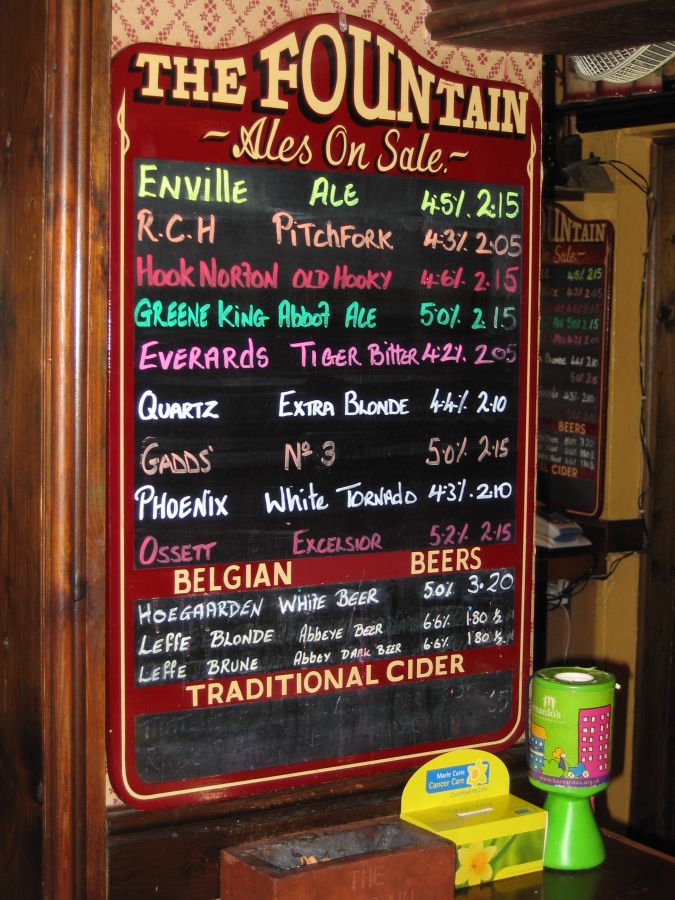 THE FOUNTAIN
~Ales On Sale.~
ENVILLE ALE 4.5% 2.15
R.C.H PITCHFORK 4.3% 2.05
HOOK NORTON OLD HOOKY 4.6% 2.15
GREENE KING ABBOT ALE 5.0% 2.15
EVERARDS TIGER BITTER 4.2% 2.05
QUARTZ EXTRA BLONDE 4.4% 2.10
GADDS' Nº 3 5.0% 2.15
PHOENIX WHITE TORNADO 4.3% 2.10
OSSETT EXCELSIOR 5.2% 2.15
BELGIAN BEERS
HOEGAARDEN WHITE BEER 5.0% 3.20
LEFFE BLONDE ABBEYE BEER 6.6% 1.80 ½
LEFFE BRUNE ABBEY DARK BEER 6.6% 1.80 ½
TRADITIONAL CIDER
Marie Curie
Cancer Care
Devoted to Life
THE
Barnardo's
www.barnardos.org.uk
OUNTAIN
Sale.~
4.5% 2.15
4.3% 2.05
BEERS
CIDER